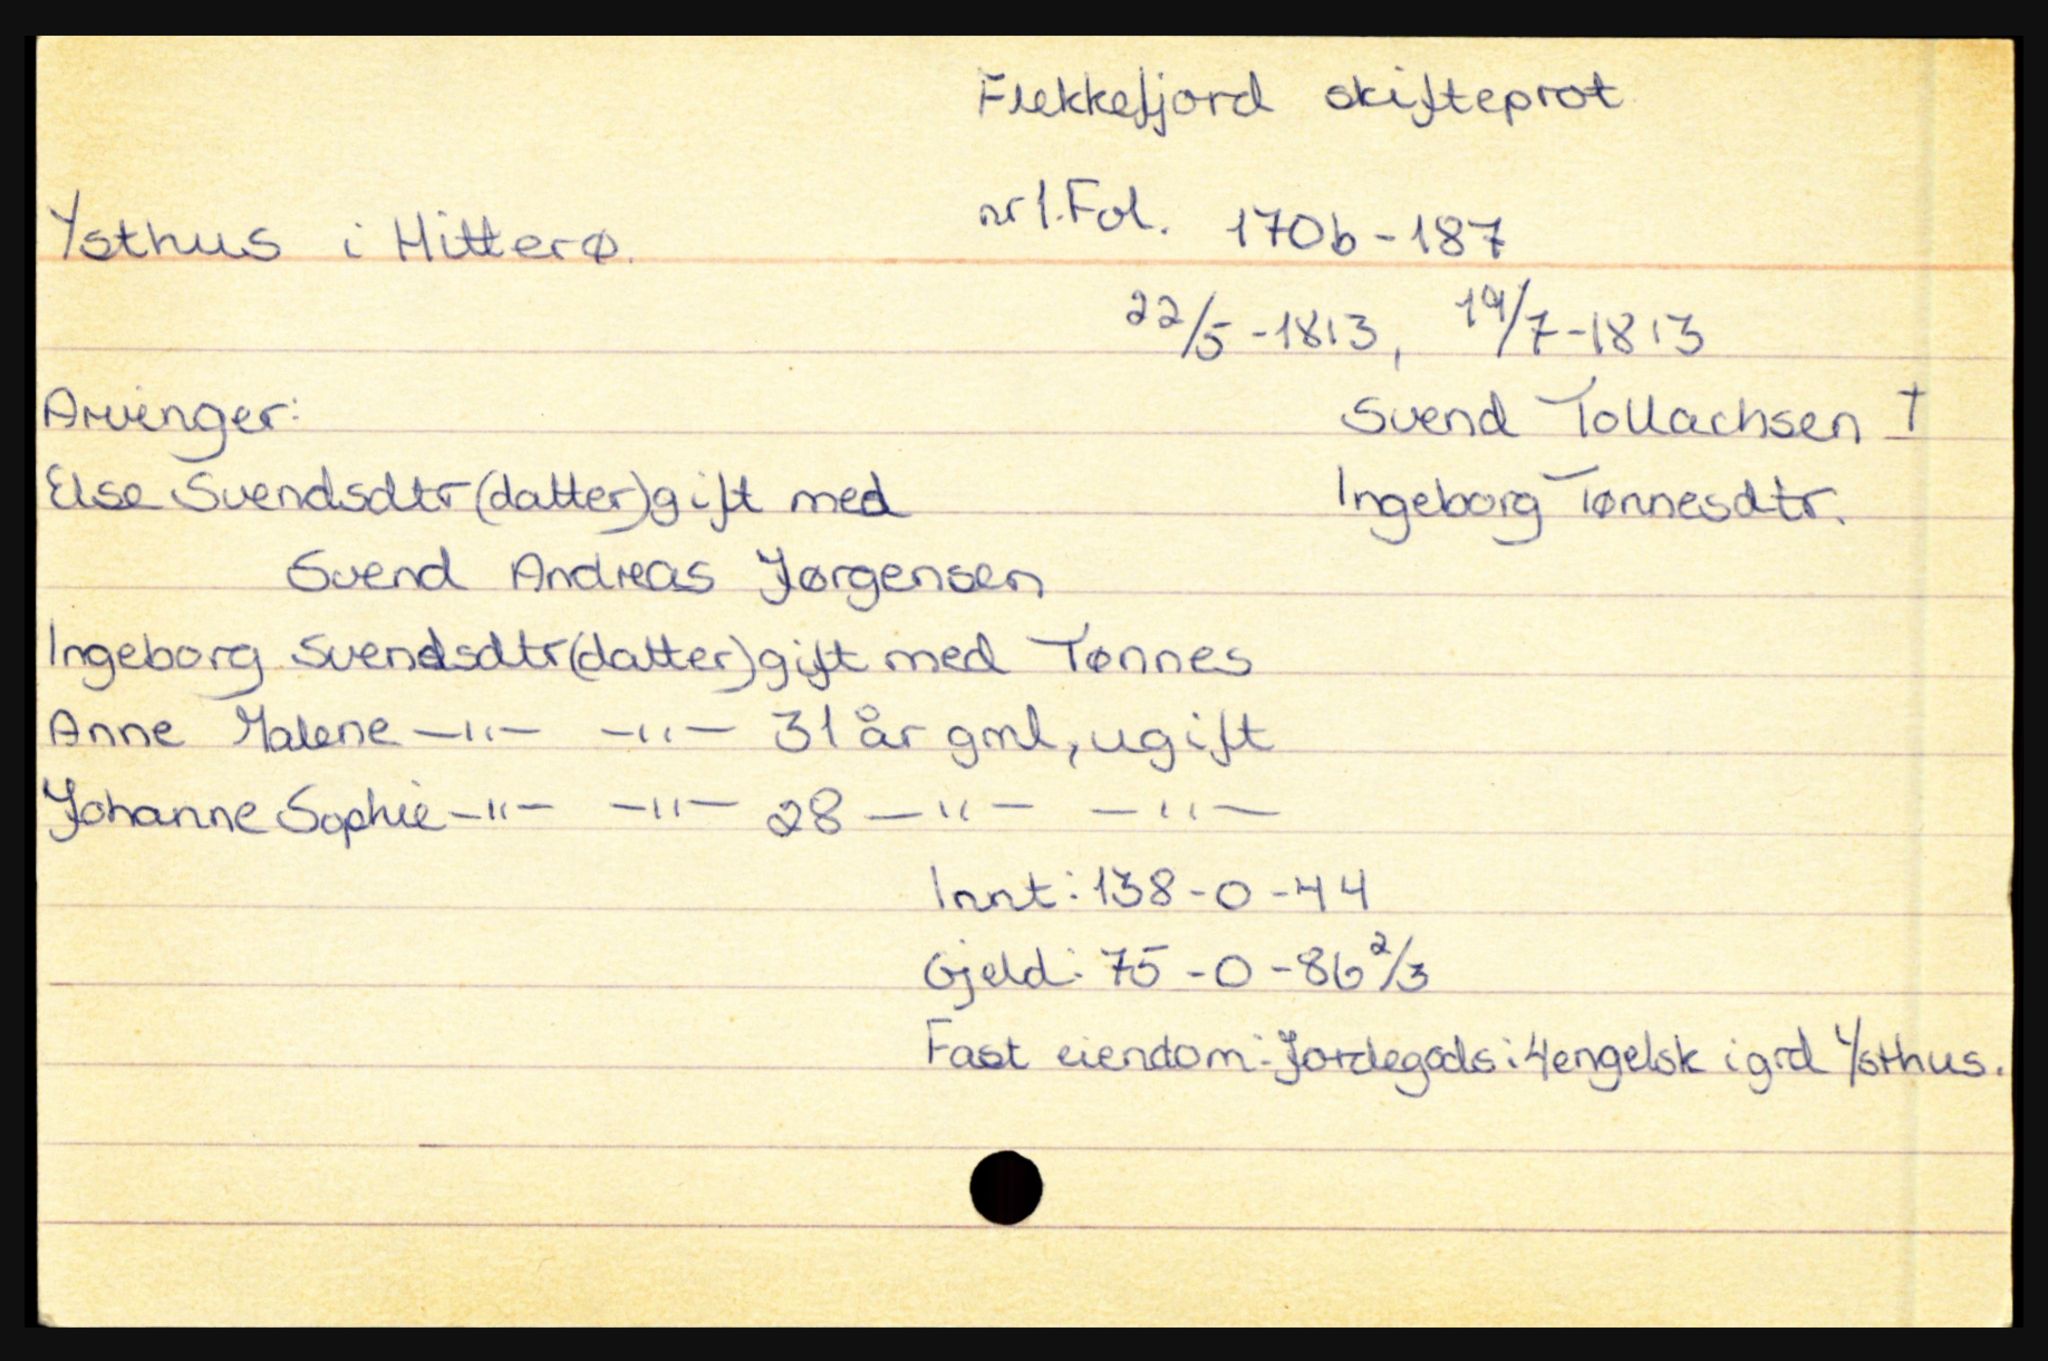 Flekkefjord skifteprot
nr 1. Fol. 170b-187
Ysthus i Hitterø.
22/5-1813, 19/7-1813
Arvinger:
Svend Tollachsen †
Else Svendsdtr (datter) gift med
Ingeborg Tønnesdtr.
Svend Andreas Jørgensen
Ingeborg Svendsdtr (datter) gift med Tønnes
Anne Malene —"— —"— 31 år gml, ugift
Johanne Sophie —"— —"— 28 —"— —"—
Innt: 138-0-44
Gjeld: 75-0-86 2/3
Fast eiendom: Jordegods i 4engelsk i grd Ysthus.